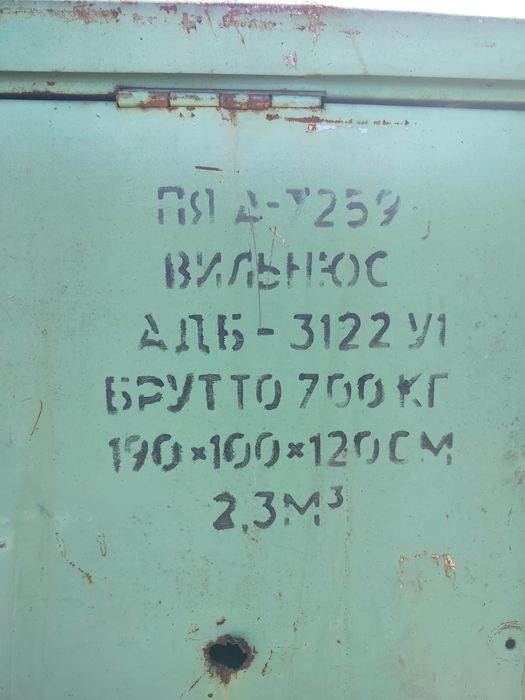 ПЯ А-7259
ВИЛЬНЮС
АДБ-3122 У1
БРУТТО 700 КГ
190×100×120 СМ
2.3М³